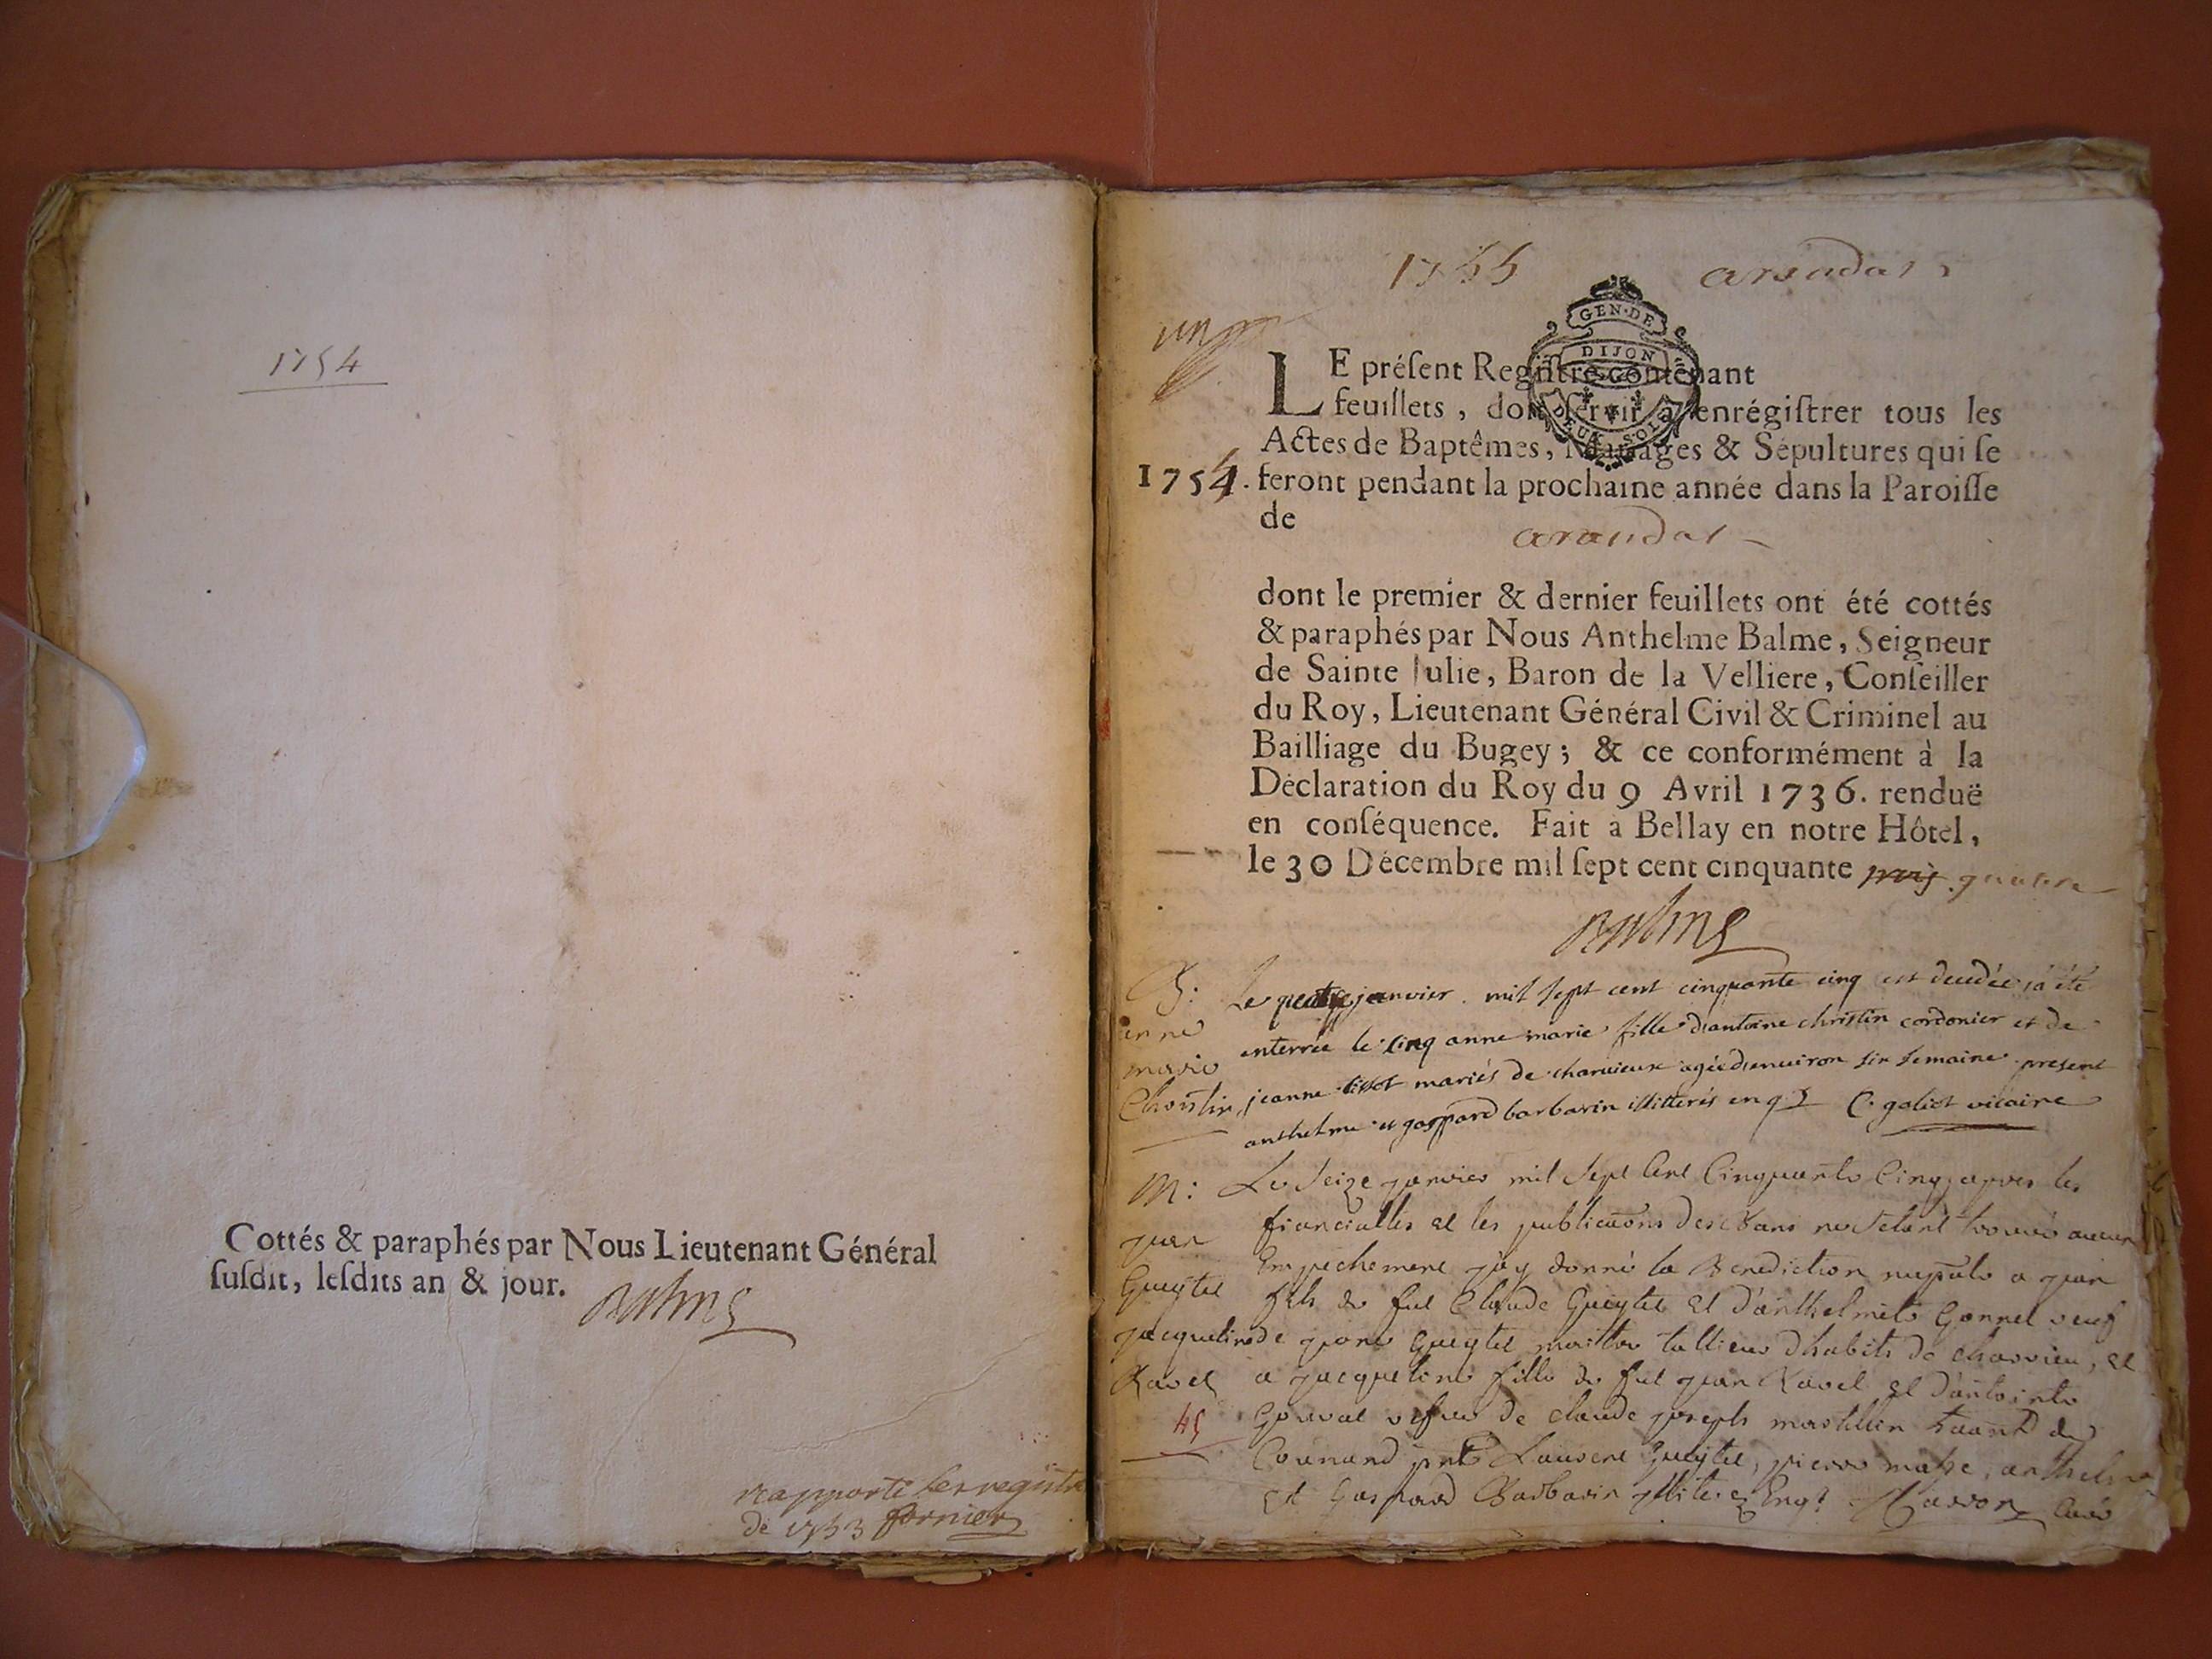 1754
Cottés & paraphés par Nous Lieutenant Général
ſuſdit, leſdits an & jour.
rapporté les registre
de 1753 fornier
1755 arandas
GEN·DE
DIJON
DEUX SOLS
un
LE préſent Regiſtre contenant
feuillets, doit ſervir à enrégiſtrer tous les
Actes de Baptêmes, Mariages & Sépultures qui ſe
1754. feront pendant la prochaine année dans la Paroiſſe
de
arandas
dont le premier & dernier feuillets ont été cottés
& paraphés par Nous Anthelme Balme, Seigneur
de Sainte Julie, Baron de la Velliere, Conſeiller
du Roy, Lieutenant Général Civil & Criminel au
Bailliage du Bugey; & ce conformément à la
Déclaration du Roy du 9 Avril 1736. renduë
en conſéquence. Fait à Bellay en notre Hôtel,
le 30 Décembre mil ſept cent cinquante trois quatre
Balme
Le janvier mil sept cent cinquante cinq est decedée, a été
enterrée le cinq anne marie fille d'antoine christin cordonier et de
jeanne tissot mariés de charvieux agée d'environ six semaine present
anthelme et gaspard barbarin illitterés enq C. galiot vicaire
anne
marie
Christin
M: Le Seize janvier mil Sept Cent Cinquante Cinq, apres les
fiancialles et les publications des bans ne s'etant trouvé aucun
Empechement j'ay donné la Benediction nuptale a jean
fils de fut Claude Gueytet et d'anthelmete Gonnet veuf
de Gueytet maitre tallieur d'habits de charvieu, et
a jacqueline fille de fut jean Ravet et d'antointe
vefve de claude joseph
Laurent Gueytet, pierre, anthelme
et Gaspard Barbarin Masson Curé
jean
Gueytet
jacqueline
Ravet
45